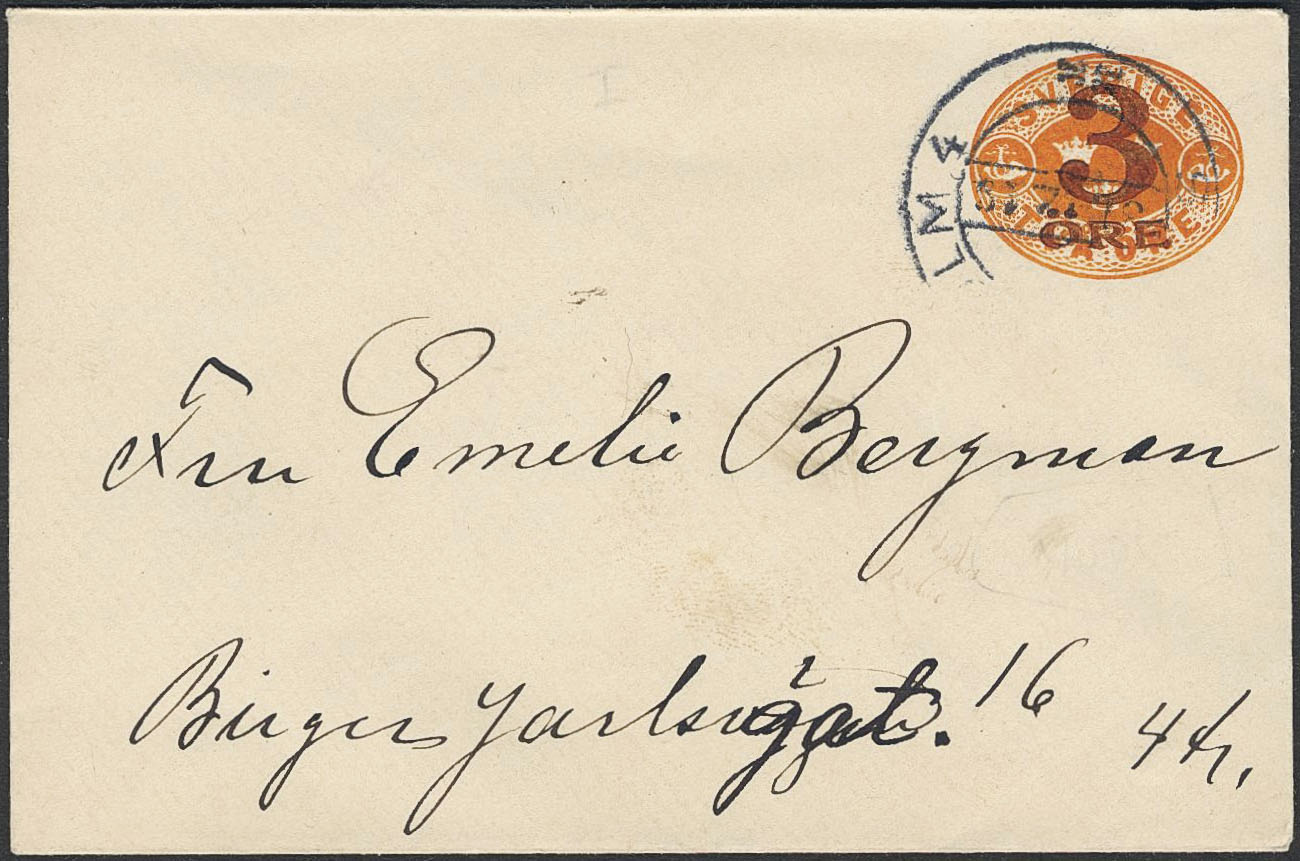 SVERIGE
3
ÖRE
TVÅ ÖRE
LM 4
Fru Emelie Bergman
Birger Jarlsgat. 16
4 tr.